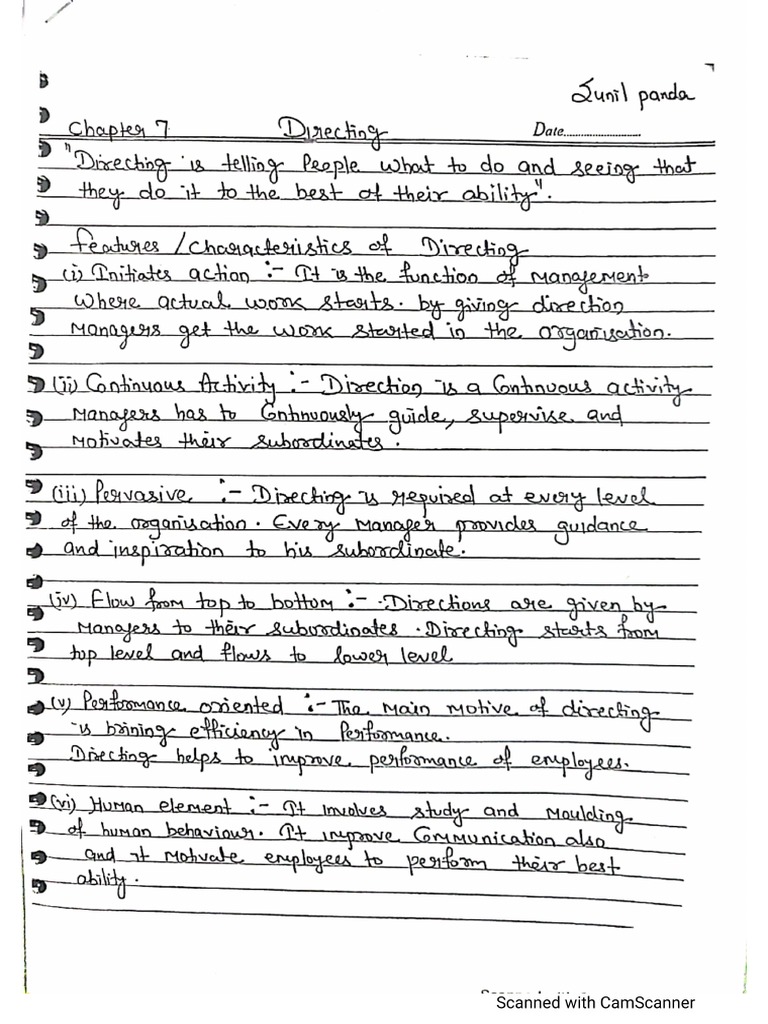 Sunil panda
Chapter 7 Directing Date
"Directing is telling People what to do and seeing that
they do it to the best of their ability".
Features / Characteristics of Directing
(i) Initiates action :- It is the function of Management
where actual work starts. by giving direction
Managers get the work started in the organisation.
(ii) Continuous Activity :- Direction is a Continuous activity
Managers has to Continuously guide, supervise and
Motivates their subordinates.
(iii) Pervasive :- Directing is required at every level
of the organisation. Every Manager provides guidance
and inspiration to his subordinate.
(iv) Flow from top to bottom :- Directions are given by
Managers to their subordinates. Directing starts from
top level and flows to lower level
(v) Performance oriented :- The Main Motive of directing
is brining efficiency in Performance.
Directing helps to improve performance of employees.
(vi) Human element :- It involves study and Moulding
of human behaviour. It improve Communication also
and it Motivate employees to perform their best
ability.
Scanned with CamScanner